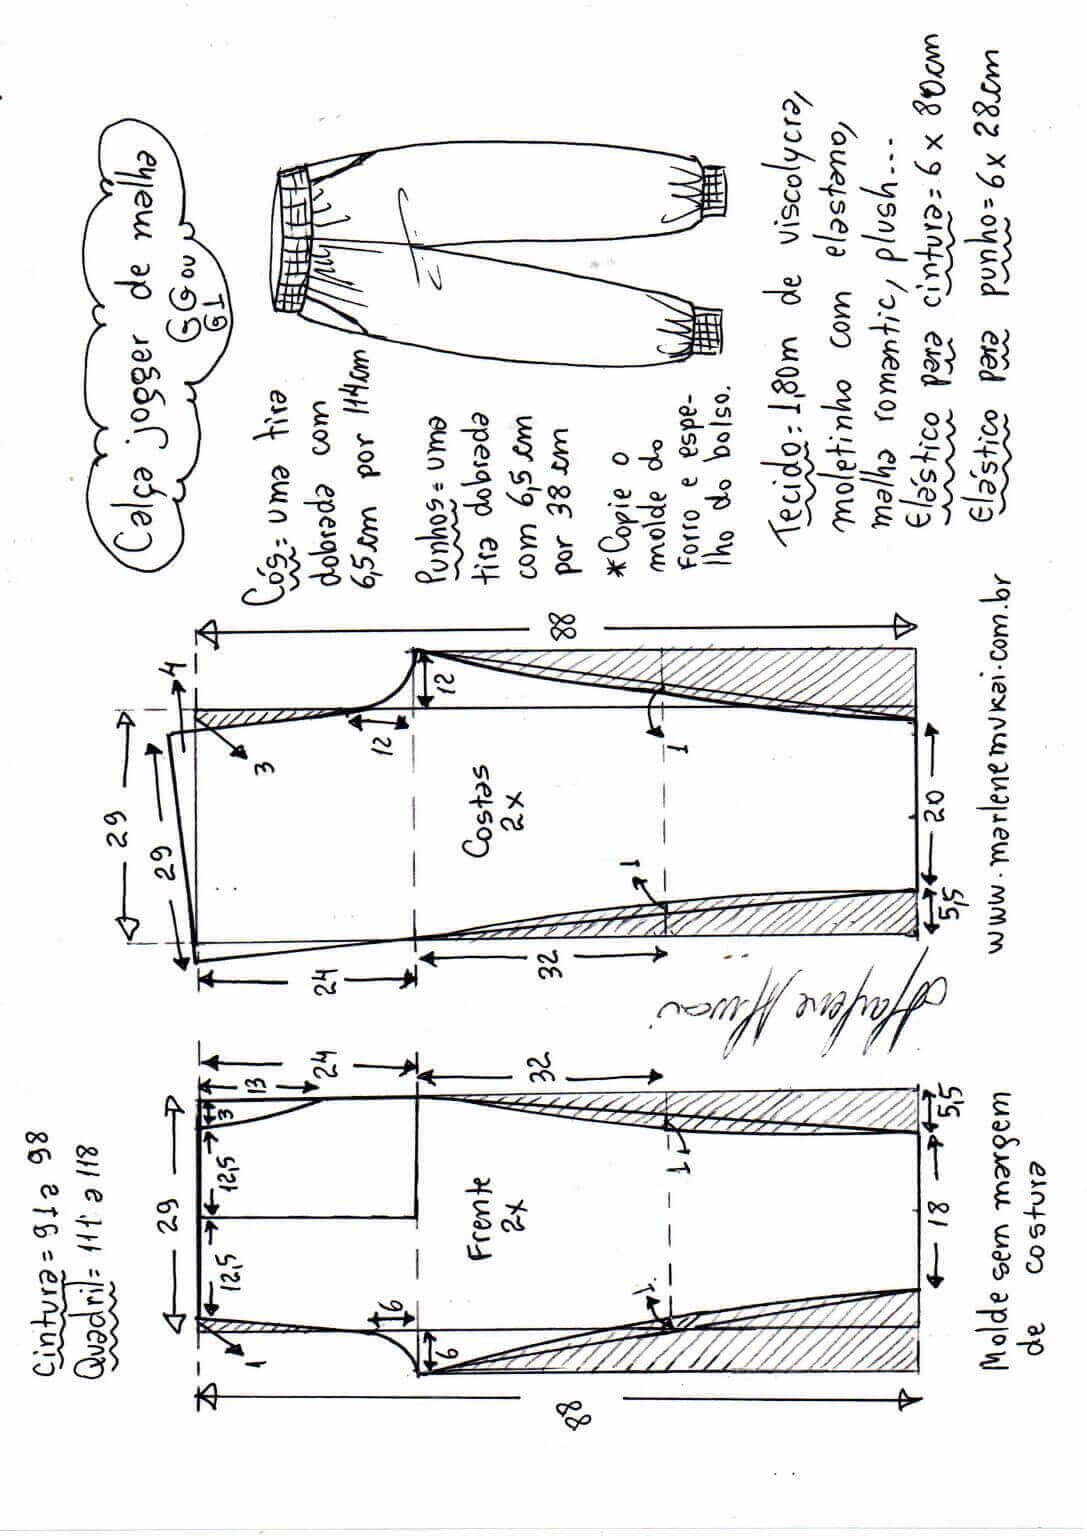 Cintura = 91 a 98
Quadril = 111 a 118
29
12,5
12,5
3
13
24
1
6
6
88
Frente
2x
32
1
1
18
5,5
Molde sem margem
de costura
Marlene Mukai
29
29
4
3
24
12
12
88
Costas
2x
32
1
1
5,5
20
www.marlenemukai.com.br
Calça jogger de malha
GG ou
G1
Cós = uma tira
dobrada com
6,5 cm por 114 cm
Punhos = uma
tira dobrada
com 6,5 cm
por 38 cm
*Copie o
molde do
forro e espe-
lho do bolso.
Tecido = 1,80m de viscolycra,
moletinho com elastano,
malha romantic, plush...
Elástico para cintura = 6 x 80cm
Elástico para punho = 6 x 28cm